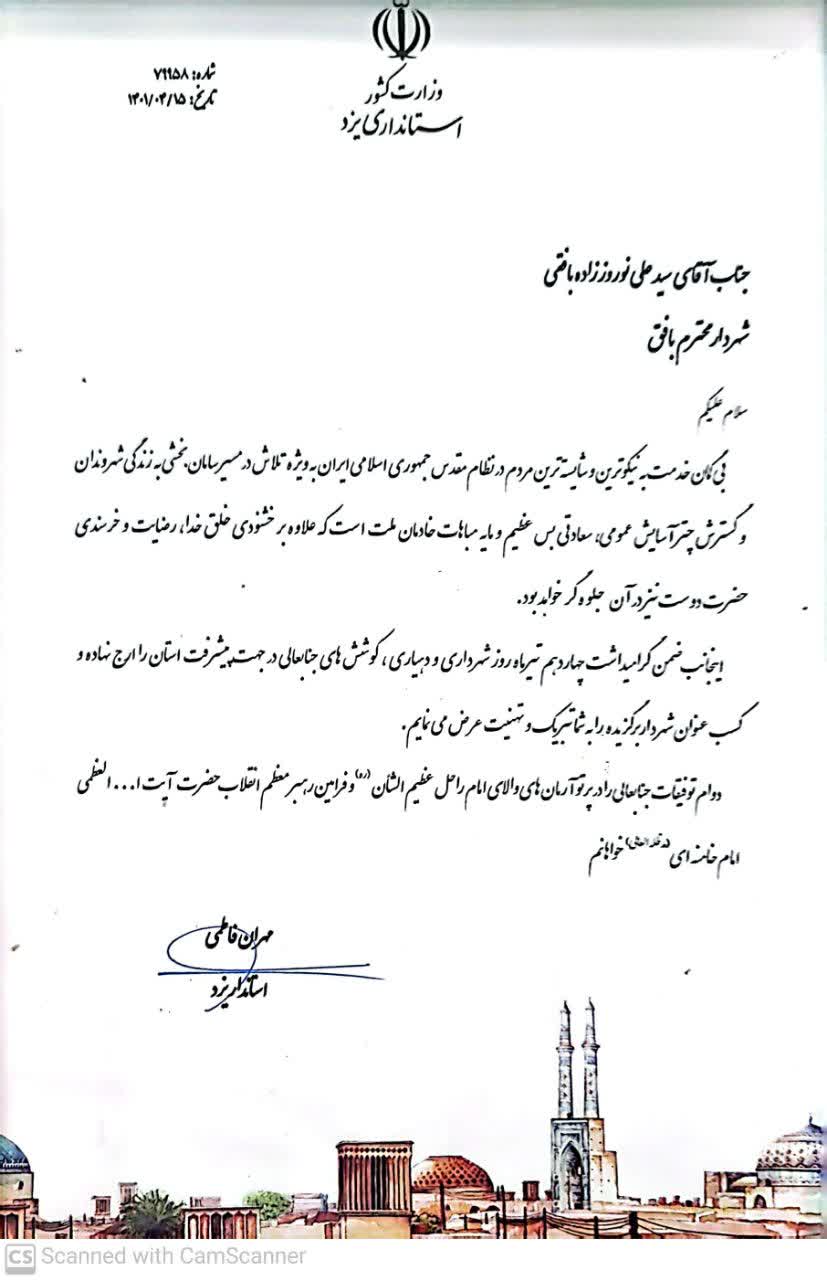 وزارت کشور
استانداری یزد
شماره: ۷۹۹۵۸
تاریخ: ۱۴۰۱/۰۴/۱۵
جناب آقای سید علی نوروززاده بافقی
شهردار محترم بافق
سلام علیکم
بی گمان خدمت به نیکوترین و شایسته ترین مردم در نظام مقدس جمهوری اسلامی ایران به ویژه تلاش در مسیر سامان بخشی به زندگی شهروندان
و گسترش چتر آسایش عمومی، سعادتی بس عظیم و مایه مباهات خادمان ملت است که علاوه بر خشنودی خلق خدا، رضایت و خرسندی
حضرت دوست نیز در آن جلوه گر خواهد بود.
اینجانب ضمن گرامیداشت چهاردهم تیرماه روز شهرداری و دهیاری ، کوشش های جنابعالی در جهت پیشرفت استان را ارج نهاده و
کسب عنوان شهردار برگزیده را به شما تبریک و تهنیت عرض می نمایم.
دوام توفیقات جنابعالی را در پرتو آرمان های والای امام راحل عظیم الشأن (ره) و فرامین رهبر معظم انقلاب حضرت آیت ا... العظمی
امام خامنه ای (مد ظله العالی) خواهانم
مهران فاطمی
استاندار یزد
CS Scanned with CamScanner